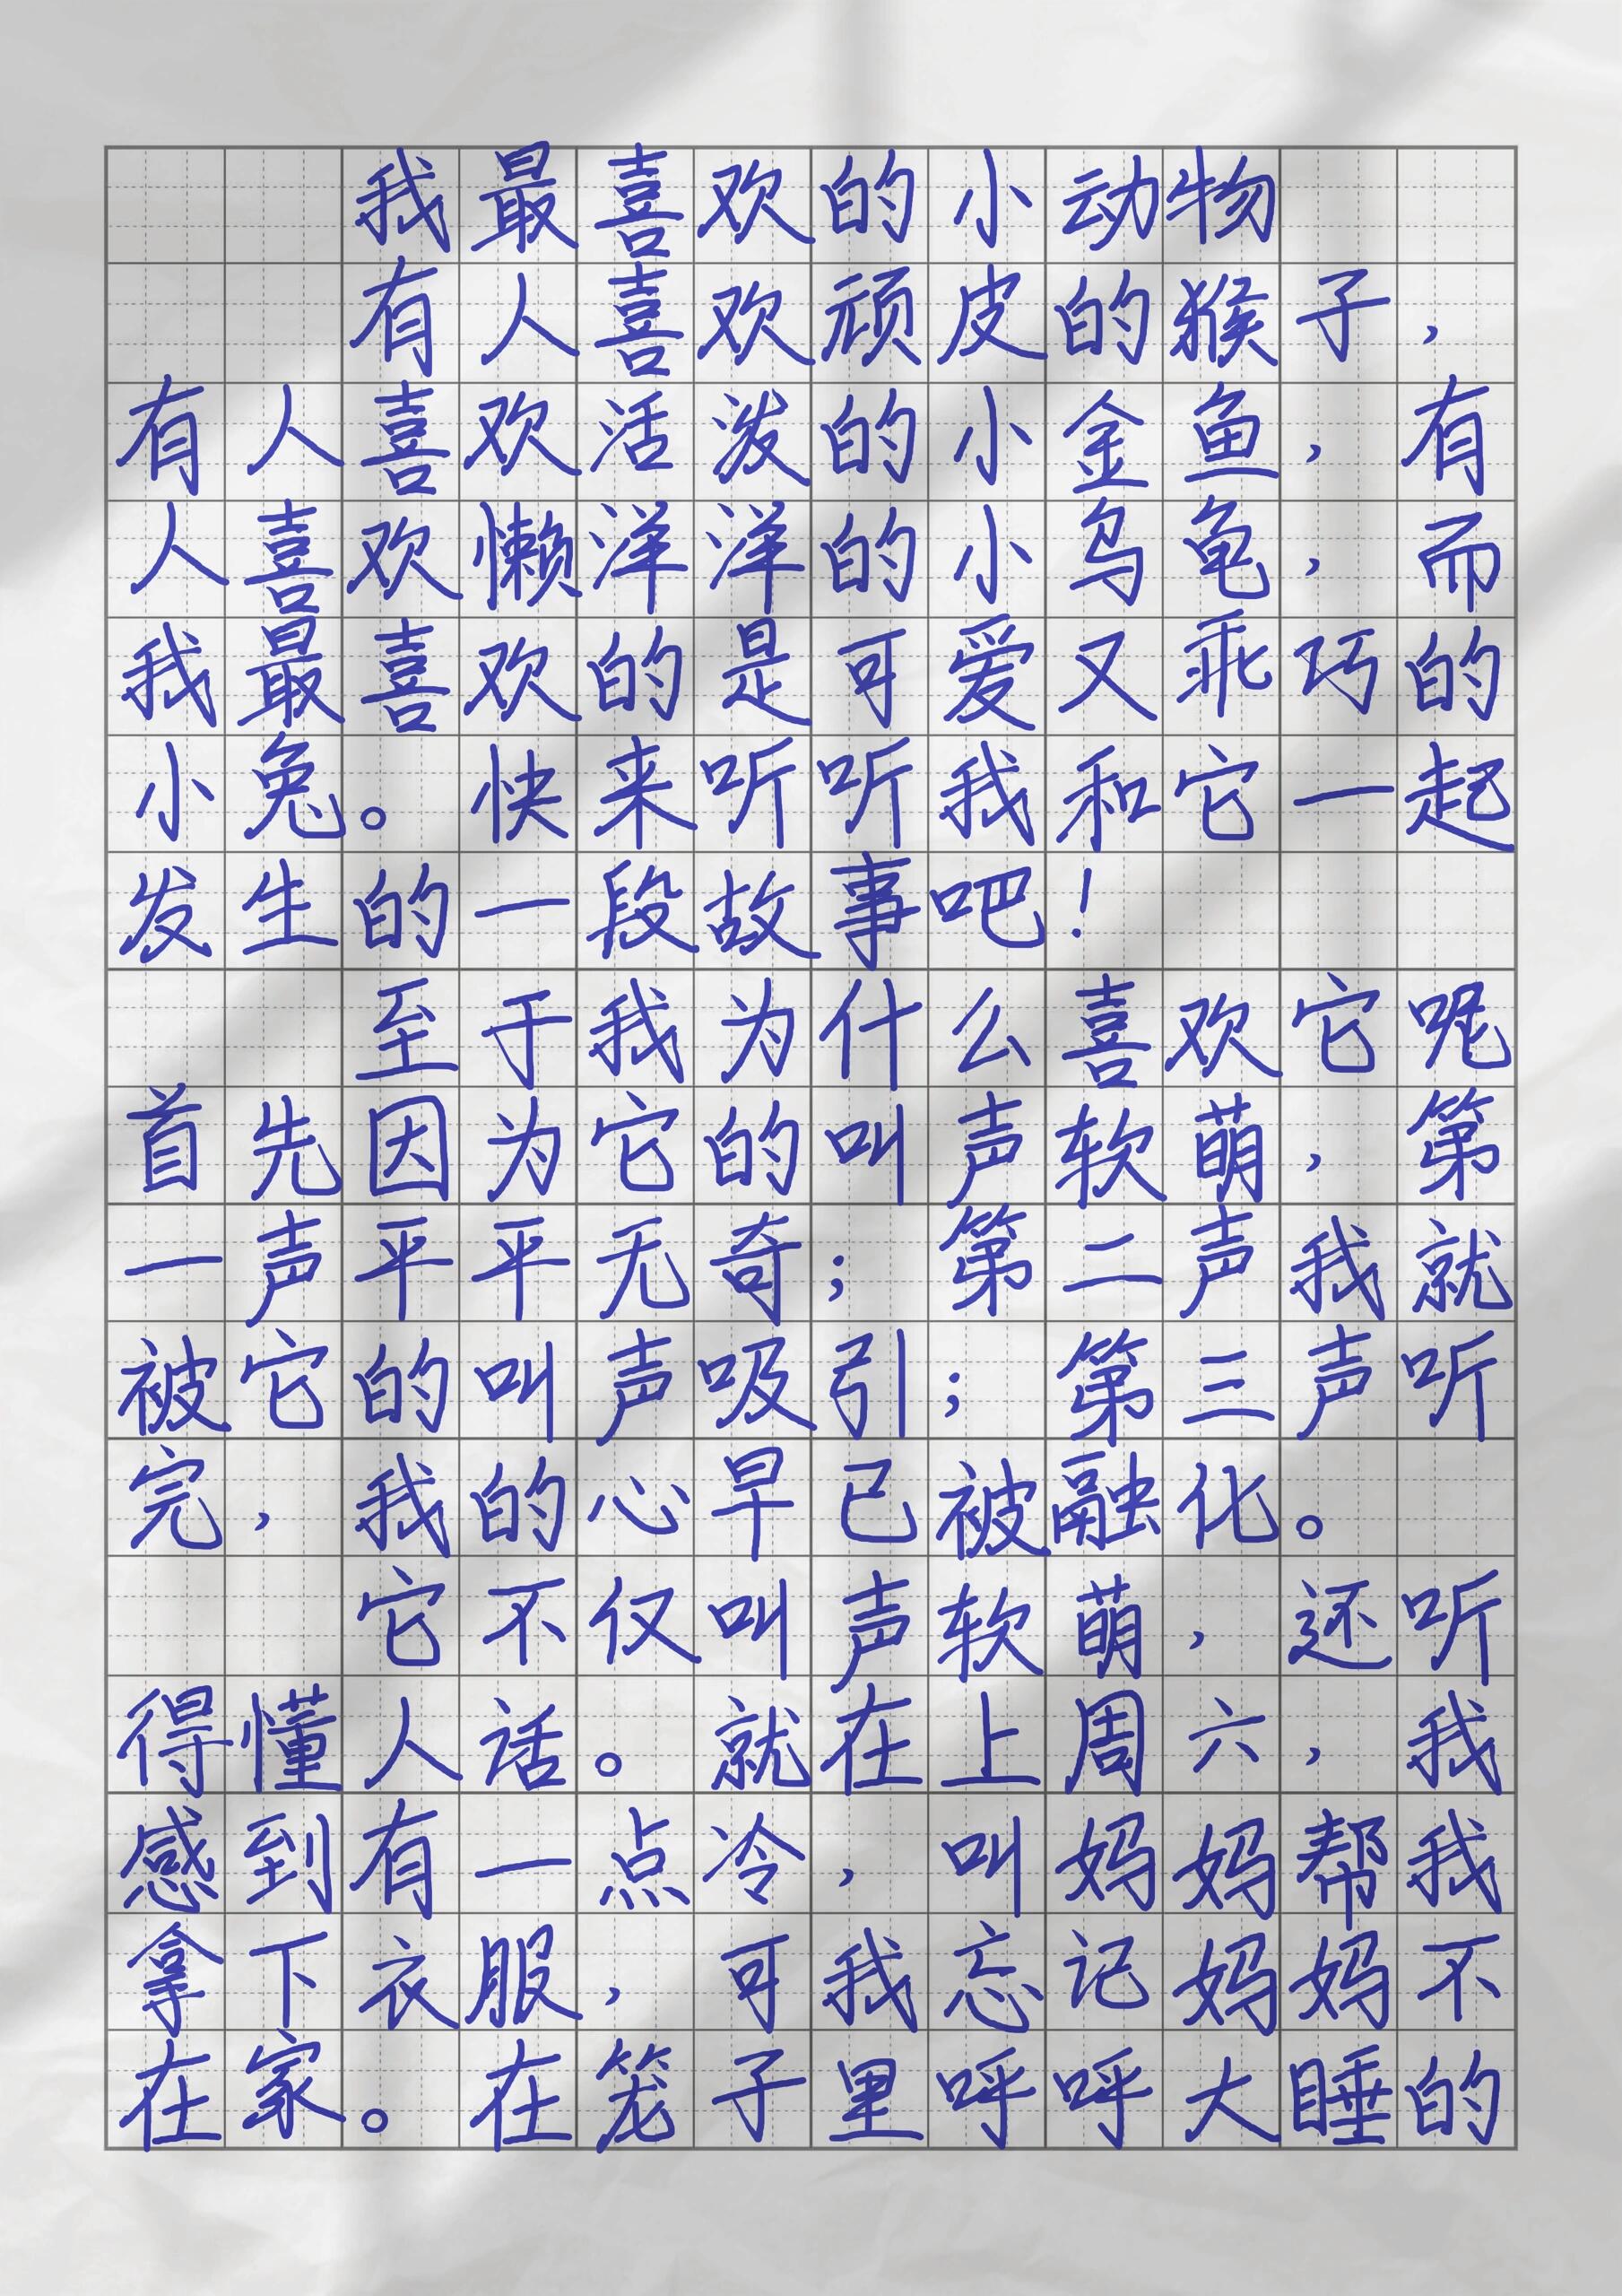 我最喜欢的小动物
有人喜欢顽皮的猴子，
有人喜欢活泼的小金鱼，有
人喜欢懒洋洋的小乌龟，而
我最喜欢的是可爱又乖巧的
小兔。快来听听我和它一起
发生的一段故事吧！
至于我为什么喜欢它呢
首先因为它的叫声软萌，第
一声平平无奇；第二声我就
被它的叫声吸引；第三声听
完，我的心早已被融化。
它不仅叫声软萌，还听
得懂人话。就在上周六，我
感到有一点冷，叫妈妈帮我
拿下衣服，可我忘记妈妈不
在家。在笼子里呼呼大睡的